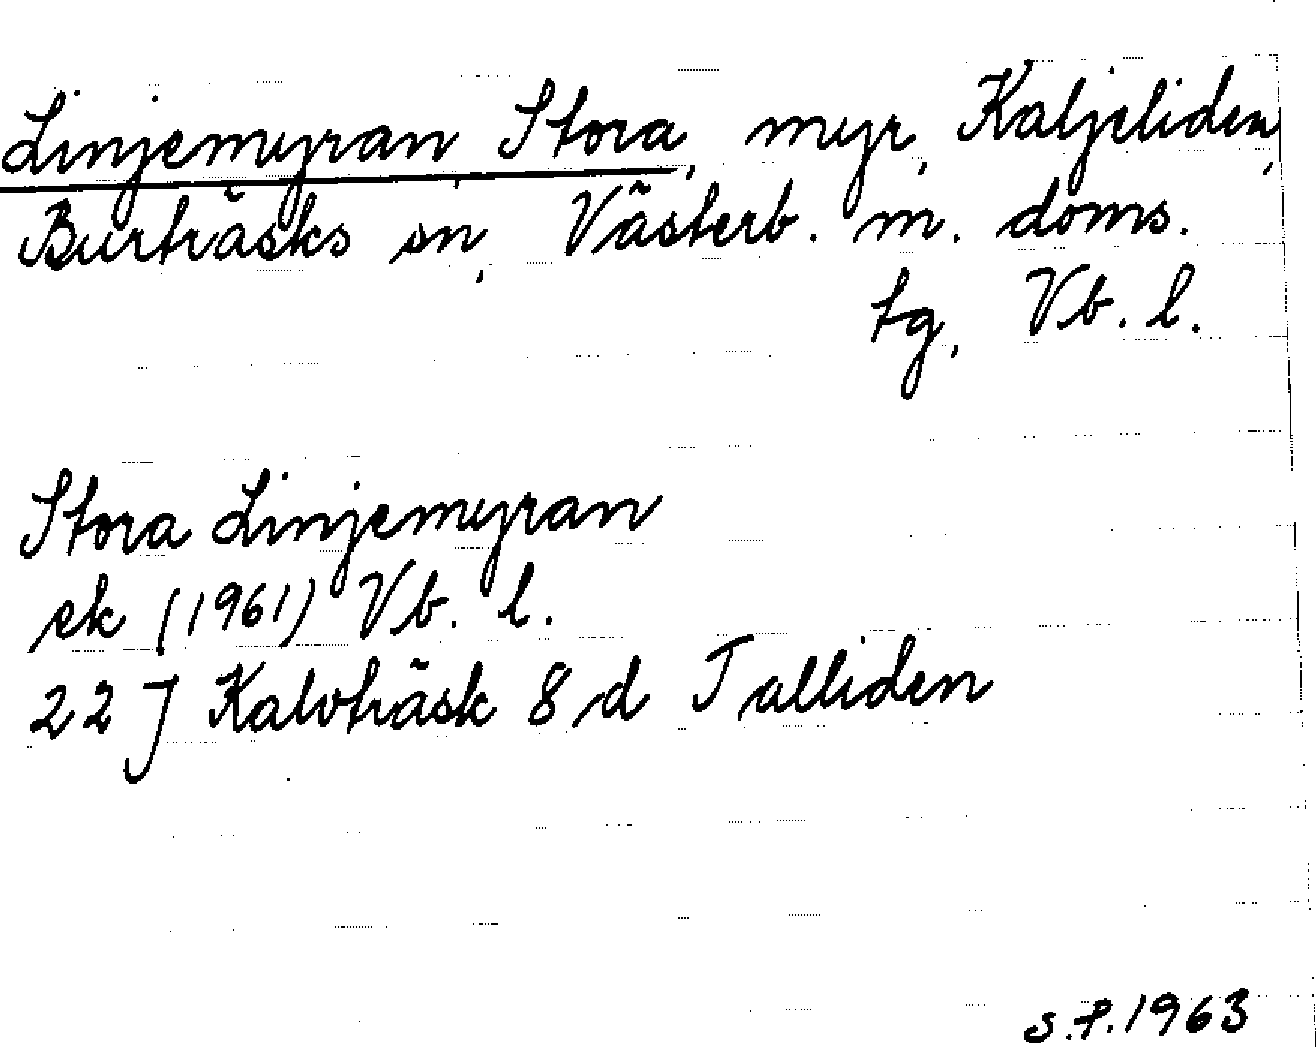 Linjemyran, Stora, myr, Kaljeliden,
Burträsks sn, Västerb. m. doms.
tg, Vb. l.
Stora Linjemyran
ek (1961) Vb. l.
22 J Kalvträsk 8 d Talliden
S.P. 1963